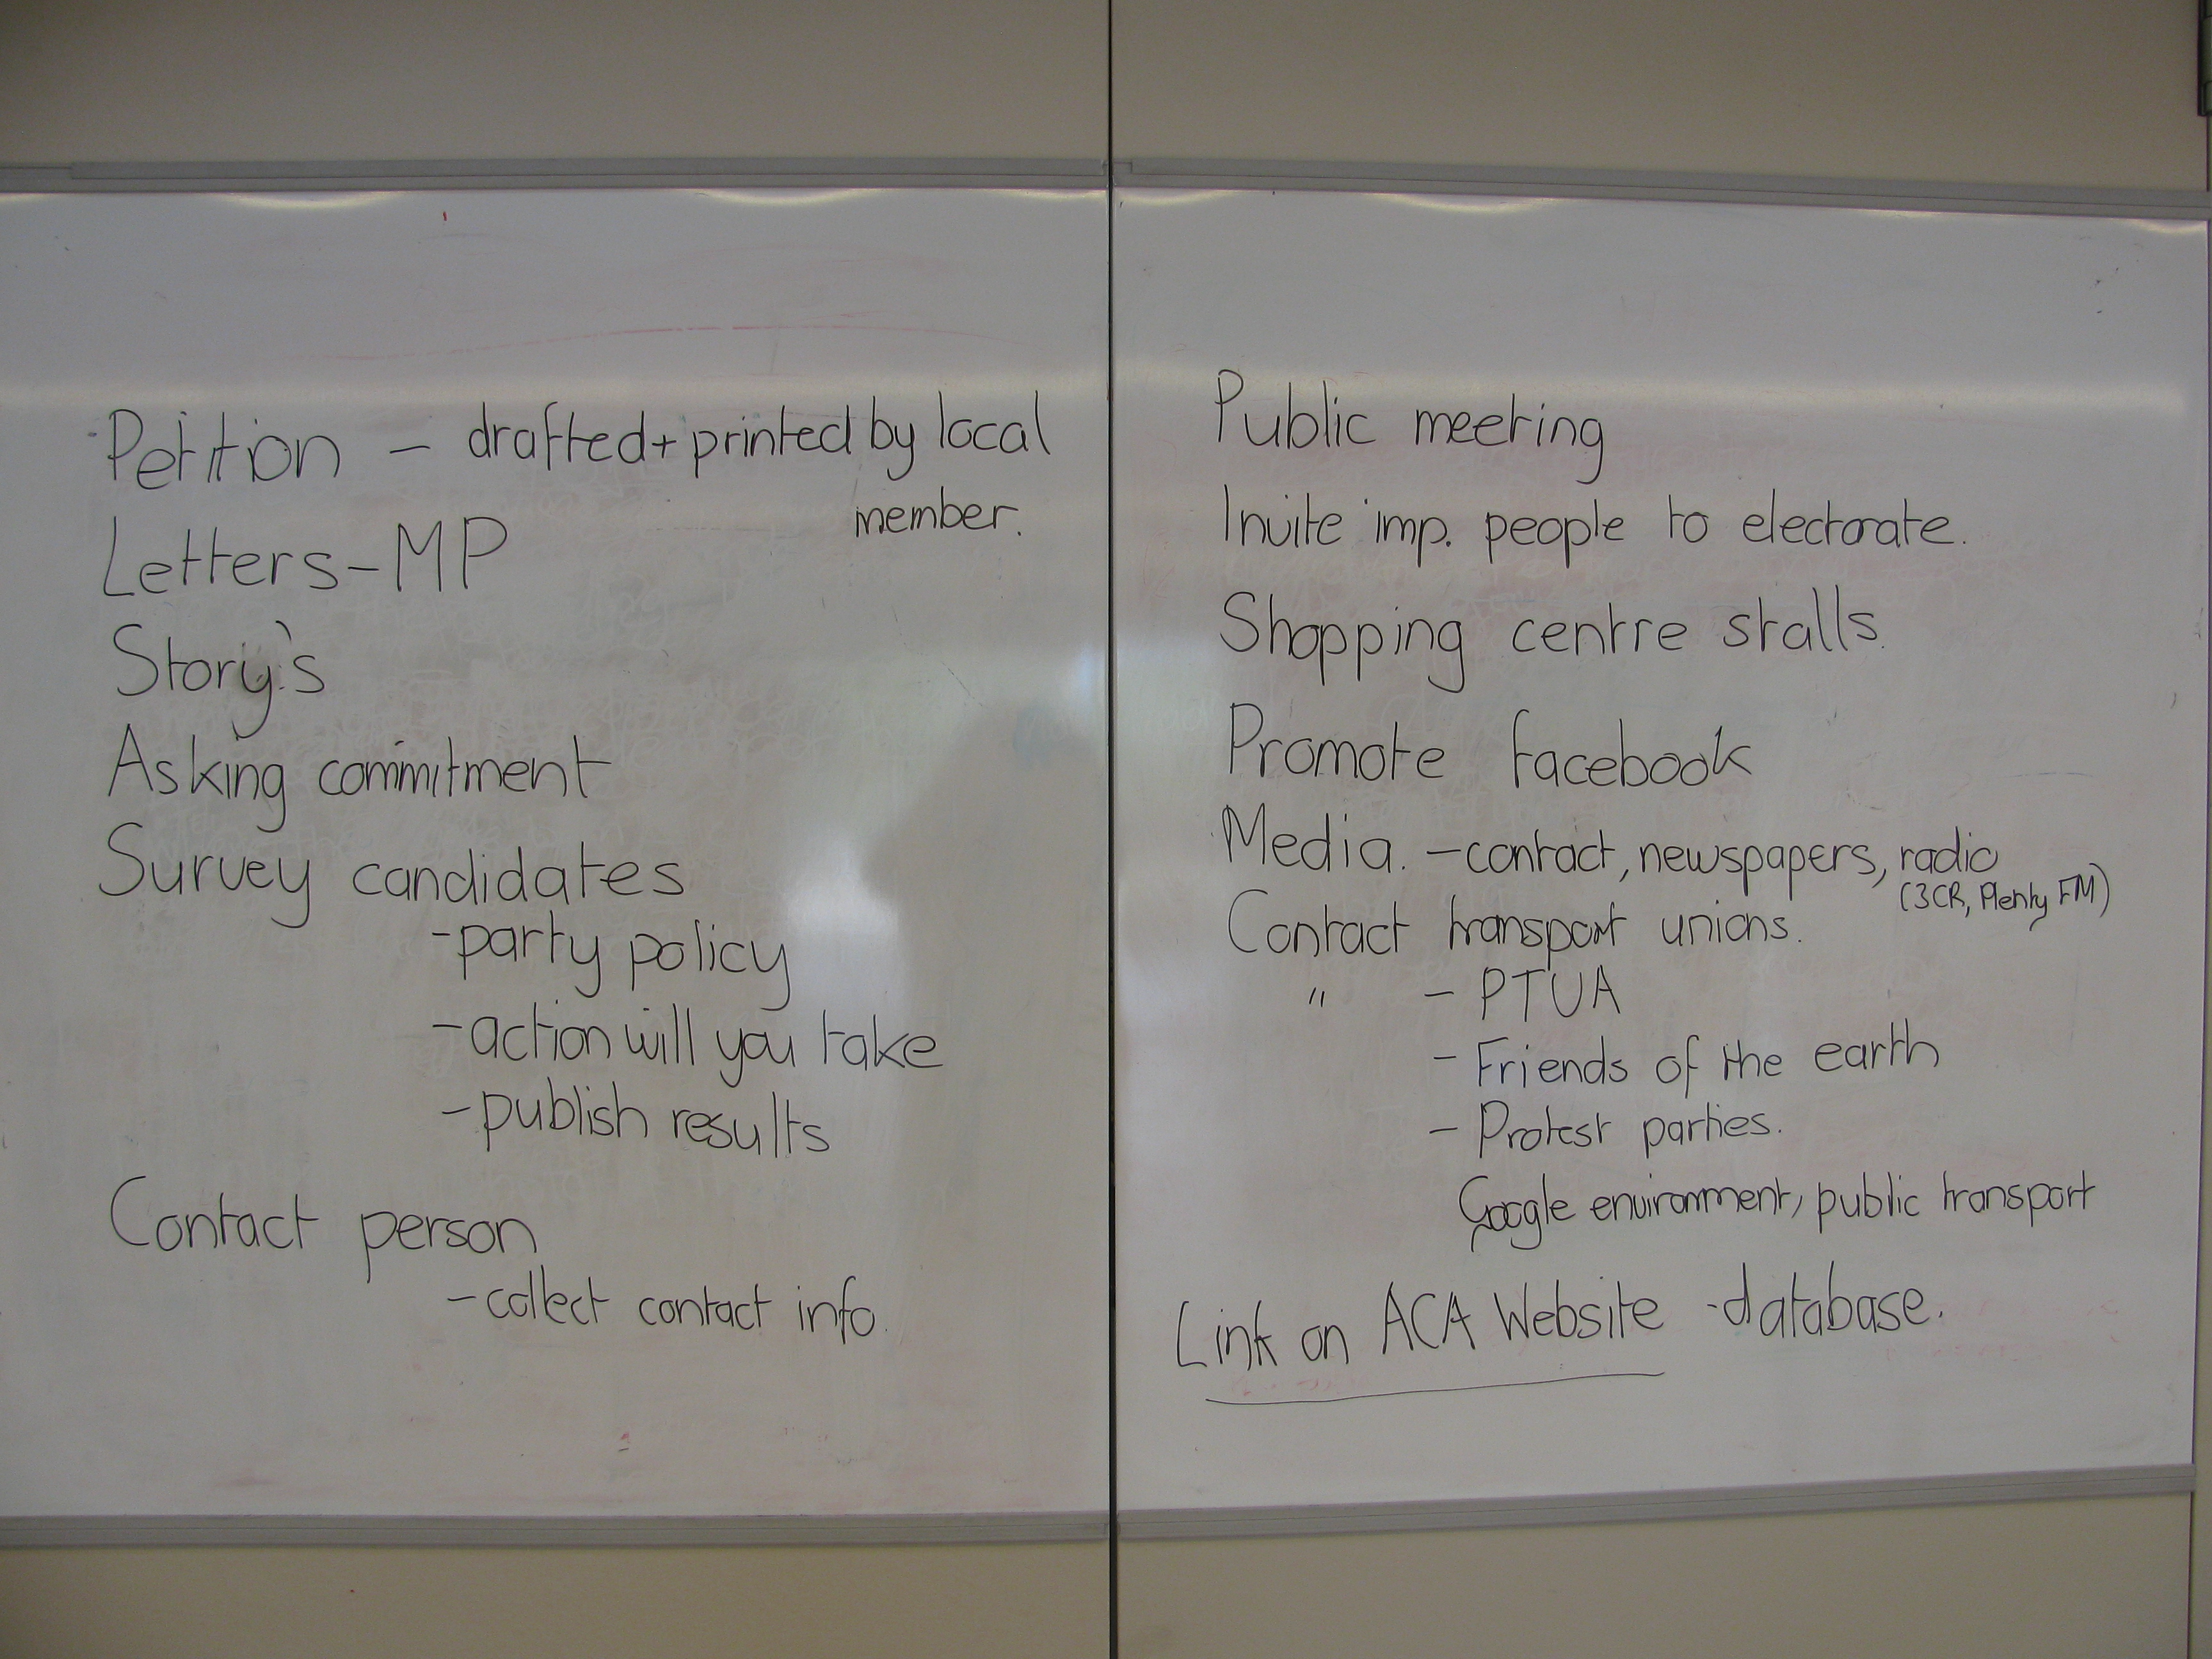 Petition - drafted + printed by local
member.
Letters - MP
Story's
Asking commitment
Survey candidates
- party policy
- action will you take
- publish results
Contact person
- collect contact info.
Public meeting
Invite imp. people to electorate.
Shopping centre stalls.
Promote facebook
Media. - contact, newspapers, radio
(3CR, Plenty FM)
Contact transport unions.
" - PTUA
- Friends of the earth
- Protest parties.
Google environment, public transport
Link on ACA Website - database.